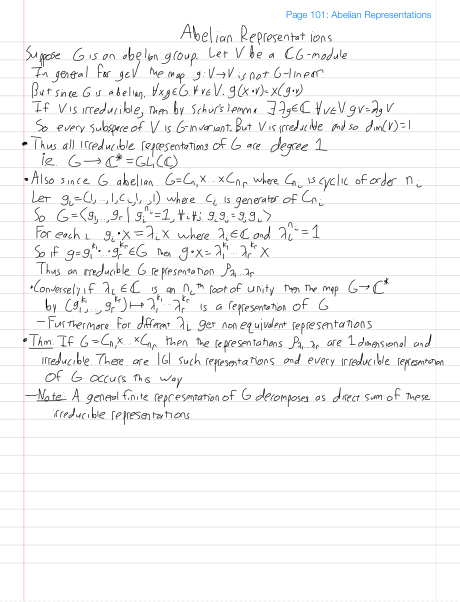 Page 101: Abelian Representations
Abelian Representations
Suppose G is an abelian group. Let V be a ℂG-module
In general for g∈V the map g: V→V is not G-linear
But since G is abelian, ∀x,g∈G ∀v∈V. g(x·v)=x(g·v)
If V is irreducible, then by Schur's lemma ∃λg∈ℂ ∀v∈V gv=λg v
So every subspace of V is G-invariant. But V is irreducible and so dim(V)=1
• Thus all irreducible representations of G are degree 1
ie. G→ℂ*=GL₁(ℂ)
• Also since G abelian G=Cn₁×...×Cnᵣ where Cnᵢ is cyclic of order nᵢ
Let gᵢ=(1,..,1,cᵢ,1,..,1) where cᵢ is generator of Cnᵢ
So G=<g₁,..,gᵣ | gᵢ^nᵢ=1, ∀i≠j gᵢgⱼ=gⱼgᵢ>
For each i gᵢ·x=λᵢx where λᵢ∈ℂ and λᵢ^nᵢ=1
So if g=g₁^k₁...gᵣ^kᵣ∈G then g·x=λ₁^k₁...λᵣ^kᵣ x
Thus an irreducible G representation ρλ₁..λᵣ
• Conversely if λᵢ∈ℂ is an nᵢth root of unity then the map G→ℂ*
by (g₁^k₁,..,gᵣ^kᵣ)↦λ₁^k₁...λᵣ^kᵣ is a representation of G
– Furthermore for different λᵢ get non equivalent representations
• Thm: If G=Cn₁×..×Cnᵣ then the representations ρλ₁..λᵣ are 1 dimensional and
irreducible. There are |G| such representations and every irreducible representation
of G occurs this way
– Note: A general finite representation of G decomposes as direct sum of these
irreducible representations